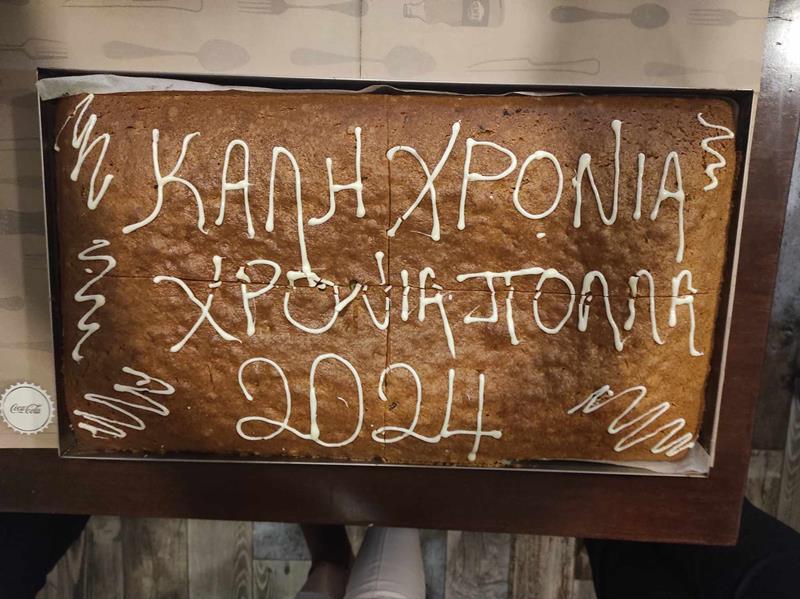 ΚΑΛΗ ΧΡΟΝΙΑ
ΧΡΟΝΙΑ ΠΟΛΛΑ
2024
Coca-Cola